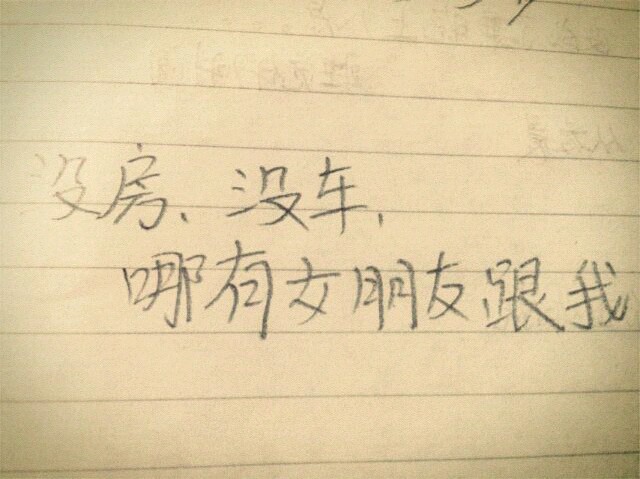 没房、没车，
哪有女朋友跟我